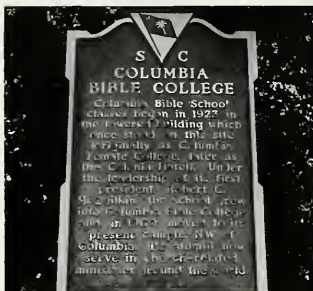 S C
COLUMBIA
BIBLE COLLEGE
Columbia Bible School
classes began in 1923 in
the towered building which
once stood on this site
originally as Columbia
Female College, later as
the Colonia Hotel. Under
the leadership of its first
president, Robert C.
the school grew
into Columbia Bible College
and in 1960 moved to its
present campus NW of
Columbia. Its alumni now
serve in church-related
ministries around the world.